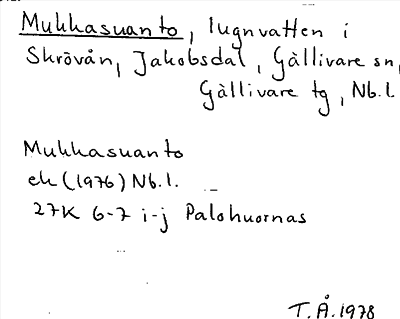 Mukkasuanto, lugnvatten i
Skrövån, Jakobsdal, Gällivare sn,
Gällivare tg, Nb.l.
Mukkasuanto
ek (1976) Nb.l.
27K 6-7 i-j Palohuornas
T.Å. 1978